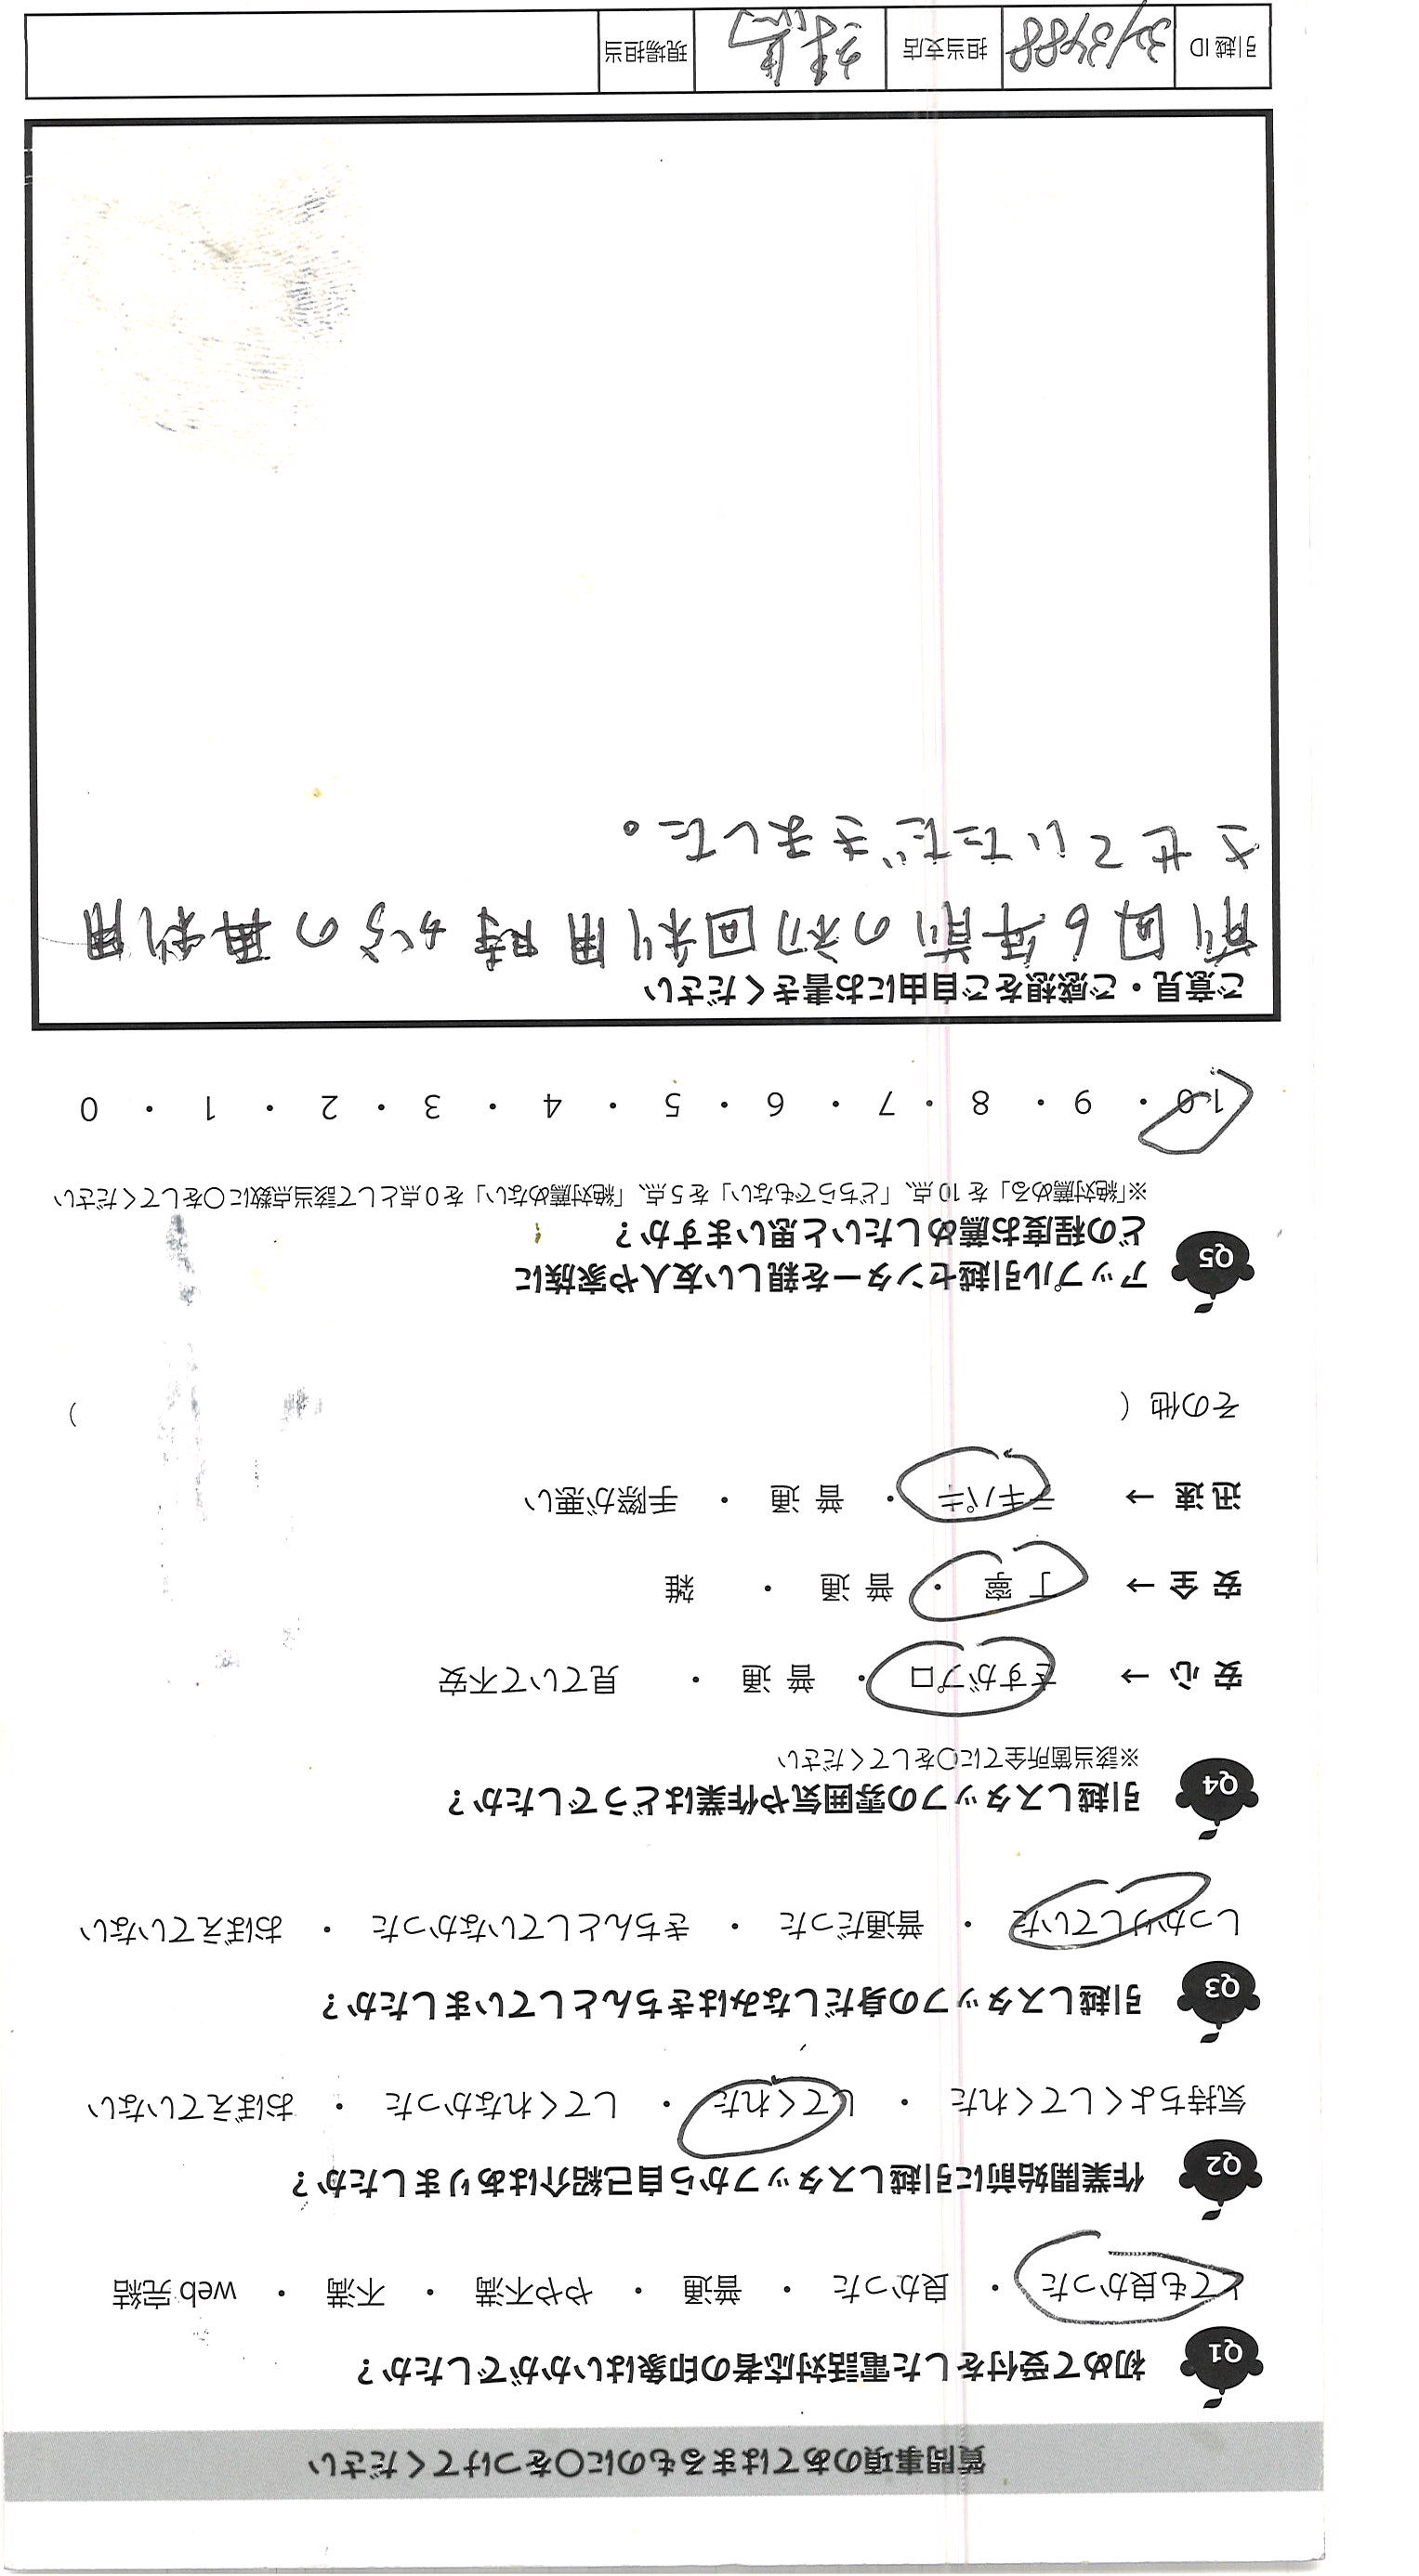 質問事項のあてはまるものに〇をつけてください
Q1 初めて受付をした電話対応者の印象はいかがでしたか？
とても良かった ・ 良かった ・ 普通 ・ やや不満 ・ 不満 ・ web完結
Q2 作業開始前に引越しスタッフから自己紹介はありましたか？
気持ちよくしてくれた ・ してくれた ・ してくれなかった ・ おぼえていない
Q3 引越しスタッフの身だしなみはきちんとしていましたか？
しっかりしていた ・ 普通だった ・ きちんとしていなかった ・ おぼえていない
Q4 引越しスタッフの雰囲気や作業はどうでしたか？
※該当箇所全てに〇をしてください
安心 → さすがプロ ・ 普通 ・ 見ていて不安
安全 → 丁寧 ・ 普通 ・ 雑
迅速 → テキパキ ・ 普通 ・ 手際が悪い
その他（ ）
Q5 アップル引越センターを親しい友人や家族に
どの程度お薦めしたいと思いますか？
※「絶対薦める」を10点、「どちらでもない」を5点、「絶対薦めない」を0点として該当点数に〇をしてください
10 ・ 9 ・ 8 ・ 7 ・ 6 ・ 5 ・ 4 ・ 3 ・ 2 ・ 1 ・ 0
ご意見・ご感想をご自由にお書きください
前回6年前の初回利用時からの再利用
させていただきました。
引越ID 3213488 担当支店 練馬 現場担当